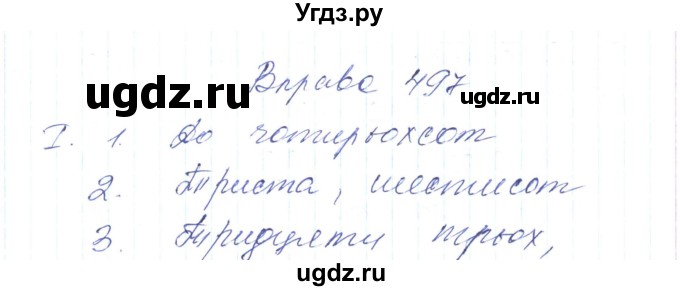 Угдз.ру
ugdz.ru
Вправа 497
ugdz.ru
I. 1. До чотирьохсот
2. Триста, шестисот
3. Тридцяти трьох,
ugdz.ru
ugdz.ru